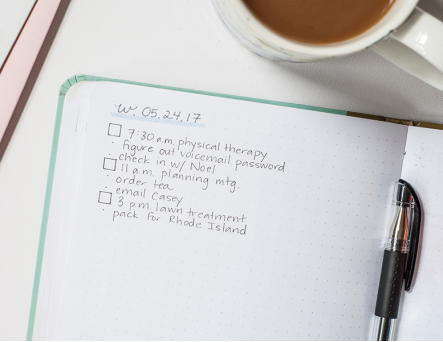 W. 05.24.17
□ 7:30 a.m. physical therapy
· figure out voicemail password
· check in w/ Noel
□ 11 a.m. planning mtg.
· order tea
· email Casey
□ 3 p.m. lawn treatment
· pack for Rhode Island